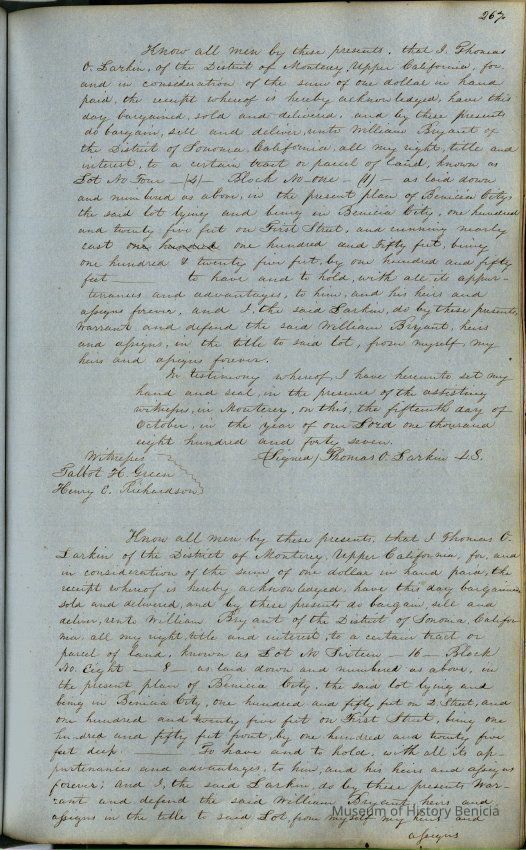 267
Know all men by these presents, that I, Thomas
O. Larkin, of the District of Monterey, Upper California, for
and in consideration of the sum of one dollar in hand
paid, the receipt whereof is hereby acknowledged, have this
day bargained, sold and delivered, and by these presents
do bargain, sell and deliver, unto William Bryant of
the District of Sonoma, California, all my right, title and
interest, to a certain tract or parcel of land, known as
Lot No Four — (4) — Block No one — (1) — as laid down
and numbered as above, in the present plan of Benicia City,
the said lot lying and being in Benicia City, one hundred
and twenty five feet on First Street, and running nearly
east one hundred one hundred and fifty feet, being
one hundred & twenty five feet, by one hundred and fifty
feet — to have and to hold, with all its appur-
tenances and advantages, to him, and his heirs and
assigns forever, and I, the said Larkin, do by these presents,
warrant and defend the said William Bryant, heirs
and assigns, in the title to said lot, from myself, my
heirs and assigns forever.
In testimony whereof, I have hereunto set my
hand and seal, in the presence of the assisting
witness, in Monterey, on this, the fifteenth day of
October, in the year of our Lord one thousand
eight hundred and forty seven.
Witnesses (Signed) Thomas O. Larkin L.S.
Talbot H. Green
Henry C. Richardson
Know all men by these presents, that I Thomas O.
Larkin of the District of Monterey, Upper California, for, and
in consideration of the sum of one dollar in hand paid, the
receipt whereof is hereby acknowledged, have this day bargained
sold and delivered, and by these presents do bargain, sell and
deliver, unto William Bryant of the District of Sonoma, Califor
nia, all my right, title and interest, to a certain tract or
parcel of land, known as Lot No Sixteen — 16 — Block
No. Eight — 8 — as laid down and numbered as above, in
the present plan of Benicia City, the said lot lying and
being in Benicia City, one hundred and fifty feet on D. Street, and
one hundred and twenty five feet on First Street, being one
hundred and fifty feet front, by one hundred and twenty five
feet deep. — To have and to hold, with all its ap-
purtenances and advantages, to him, and his heirs and assigns
forever; and I, the said Larkin, do by these presents War-
rant and defend the said William Bryant, heirs and
assigns in the title to said Lot, from myself my heirs and
assigns
Museum of History Benicia